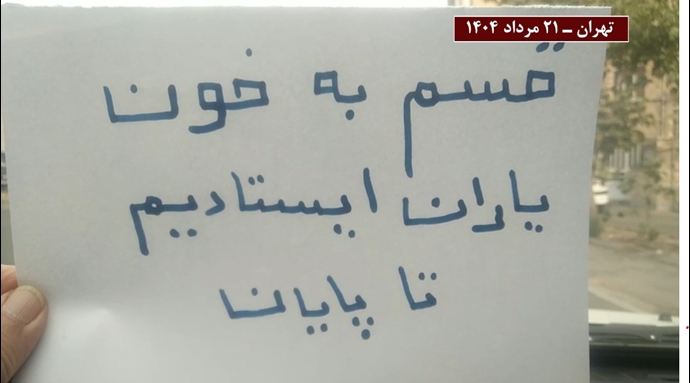 تهران ـ ۲۱ مرداد ۱۴۰۴
قسم به خون
یاران ایستادیم
تا پایان